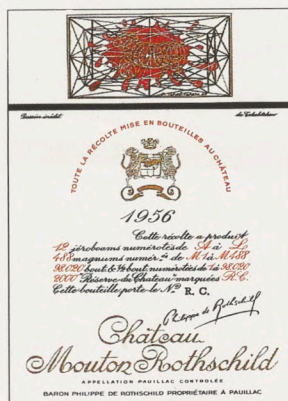 Dessin inédit de Tchelitchew
TOUTE LA RÉCOLTE MISE EN BOUTEILLES AU CHÂTEAU
1956
Cette récolte a produit
12 jéroboams numérotés de A à L
488 magnums numér.^s de M1 à M488
98.020 bout. & ½ bout. numérotées de 1 à 98.020
2000 "Réserve du Château" marquées R.C.
Cette bouteille porte le N.º R. C.
Philippe de Rothschild
Château
Mouton Rothschild
APPELLATION PAUILLAC CONTRÔLÉE
BARON PHILIPPE DE ROTHSCHILD PROPRIÉTAIRE À PAUILLAC